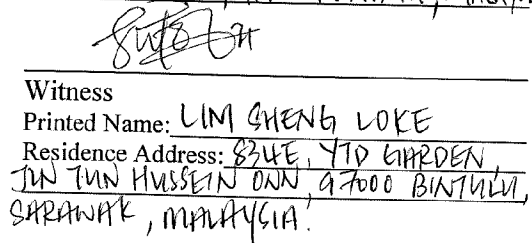 Witness
Printed Name: LIM SHENG LOKE
Residence Address: 834E, YTD GARDEN,
JLN TUN HUSSEIN ONN, 97000 BINTULU,
SARAWAK, MALAYSIA.